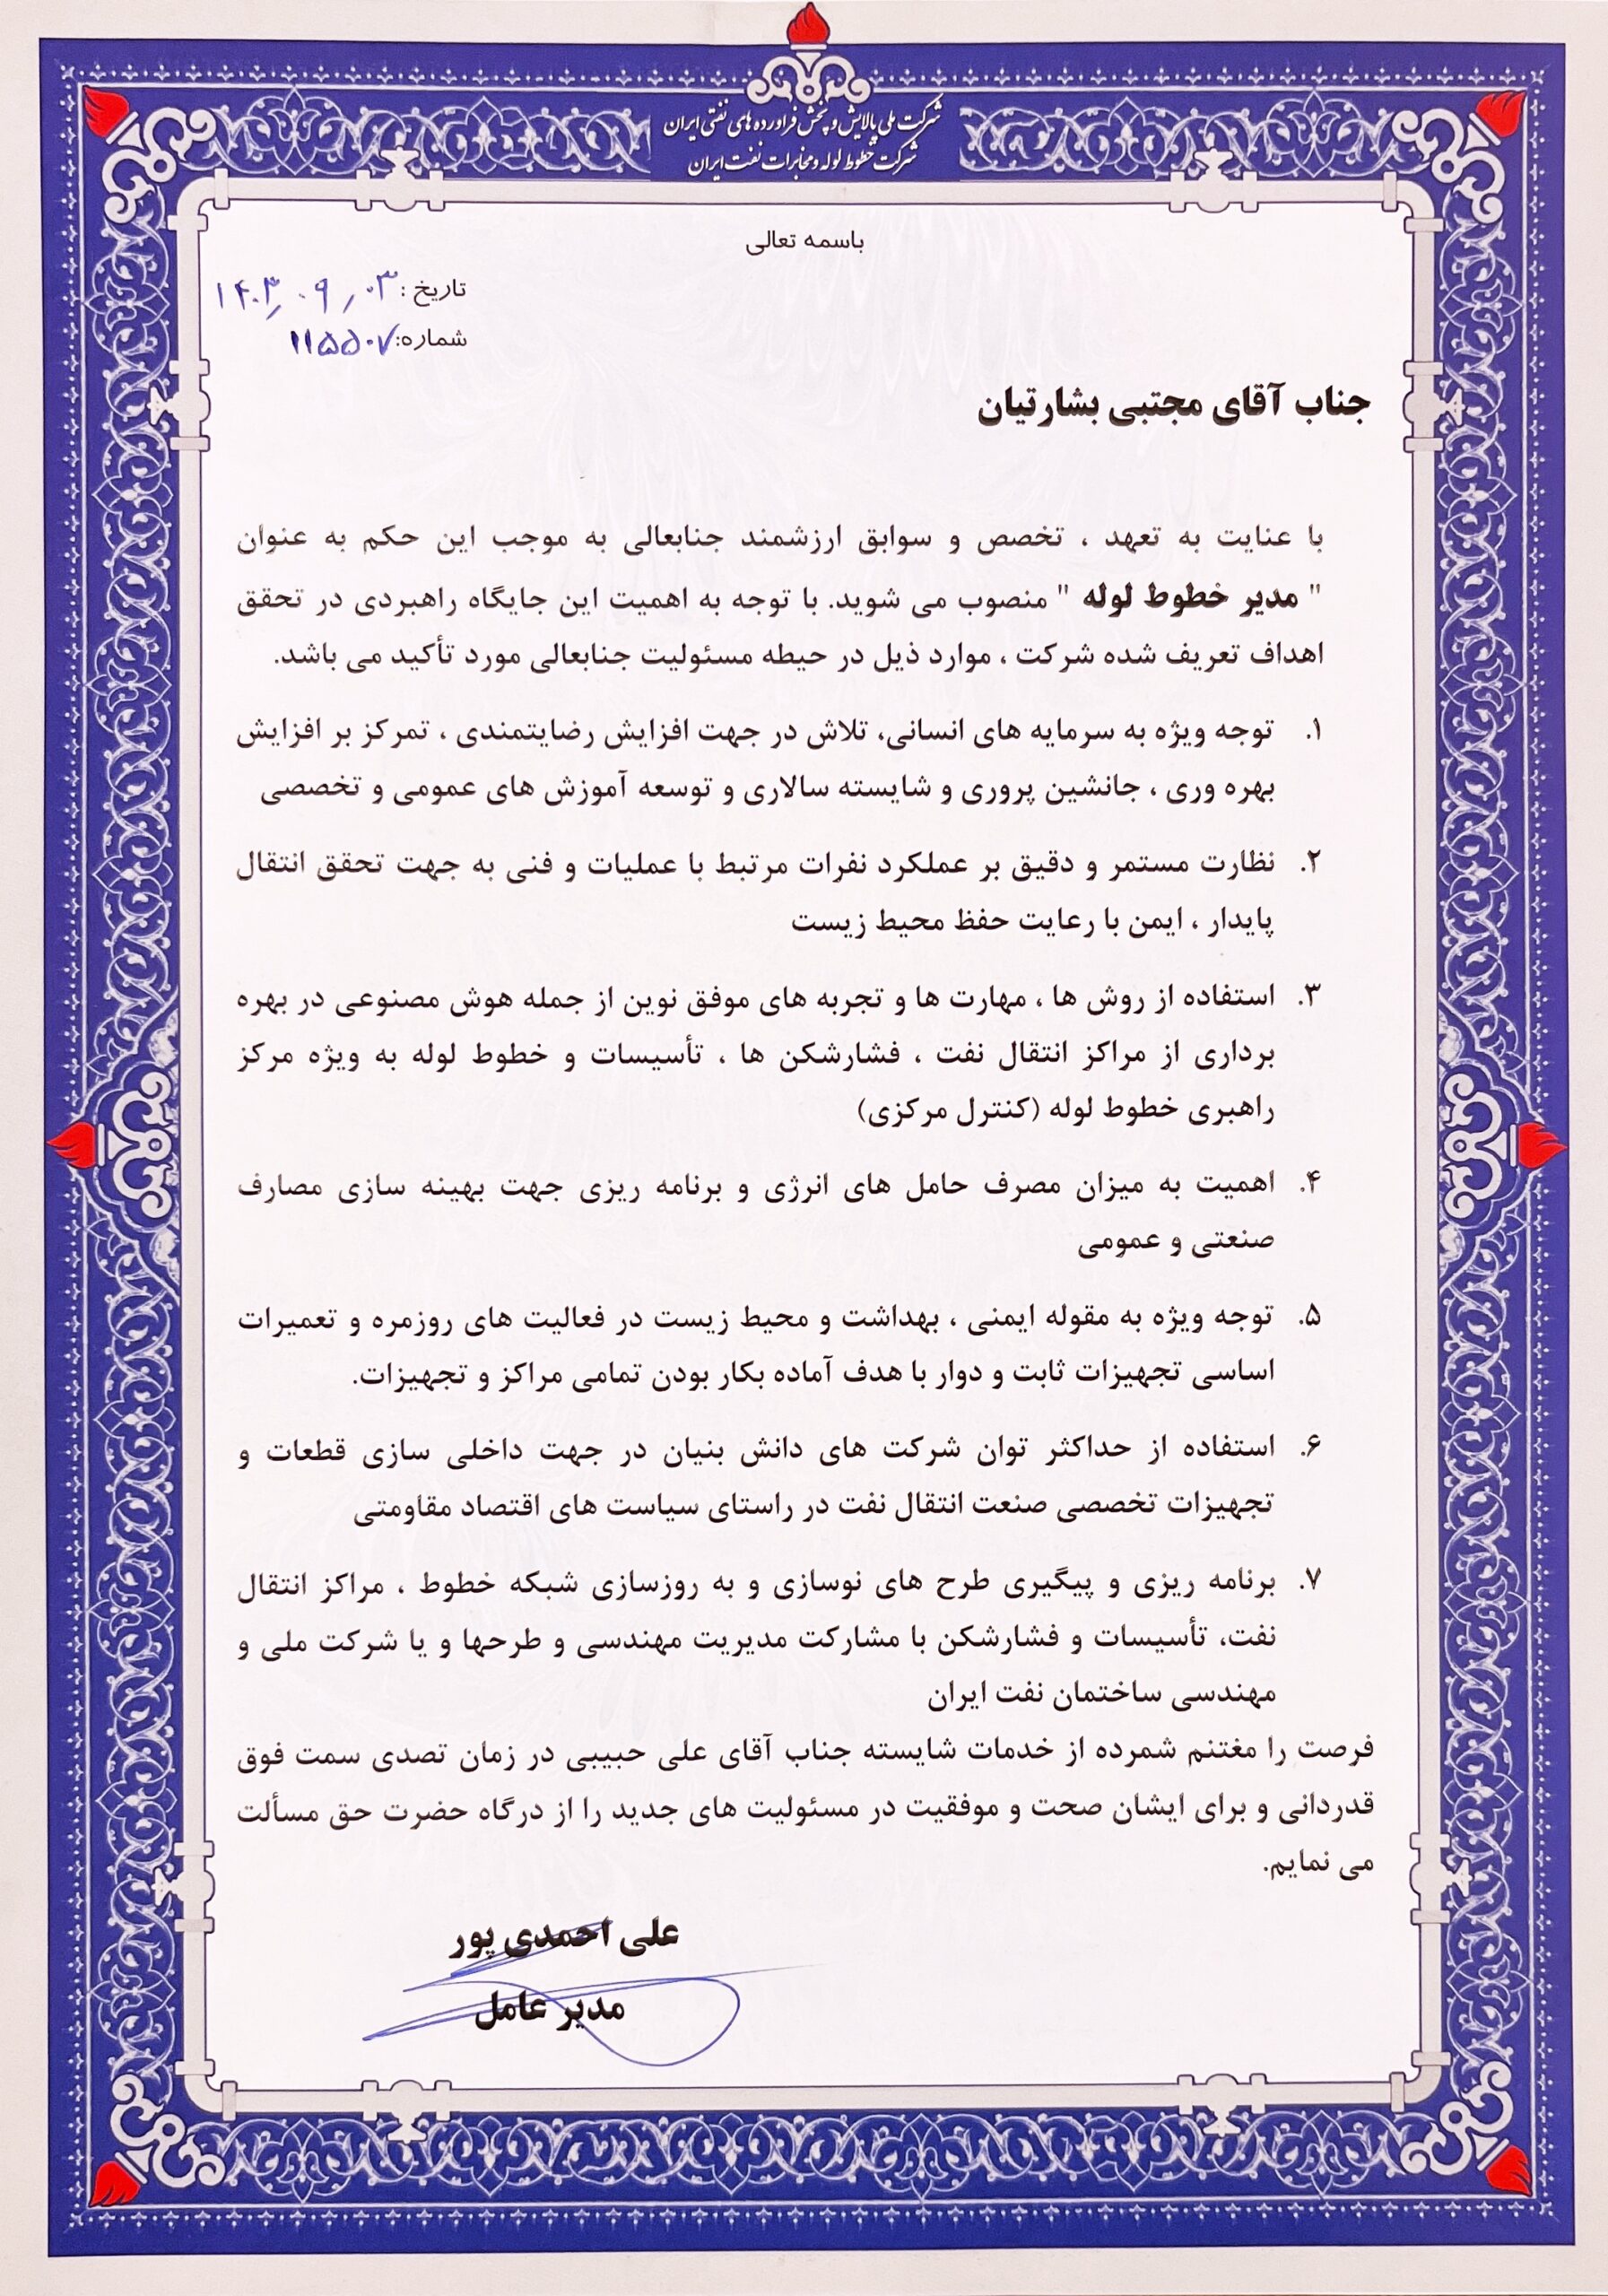 شرکت ملی پالایش و پخش فرآورده های نفتی ایران
شرکت خطوط لوله و مخابرات نفت ایران
باسمه تعالی
تاریخ : ۱۴۰۳٫۰۹٫۰۳
شماره: ۱۱۵۵۰۷
جناب آقای مجتبی بشارتیان
با عنایت به تعهد ، تخصص و سوابق ارزشمند جنابعالی به موجب این حکم به عنوان
" مدیر خطوط لوله " منصوب می شوید. با توجه به اهمیت این جایگاه راهبردی در تحقق
اهداف تعریف شده شرکت ، موارد ذیل در حیطه مسئولیت جنابعالی مورد تأکید می باشد.
۱. توجه ویژه به سرمایه های انسانی، تلاش در جهت افزایش رضایتمندی ، تمرکز بر افزایش
بهره وری ، جانشین پروری و شایسته سالاری و توسعه آموزش های عمومی و تخصصی
۲. نظارت مستمر و دقیق بر عملکرد نفرات مرتبط با عملیات و فنی به جهت تحقق انتقال
پایدار ، ایمن با رعایت حفظ محیط زیست
۳. استفاده از روش ها ، مهارت ها و تجربه های موفق نوین از جمله هوش مصنوعی در بهره
برداری از مراکز انتقال نفت ، فشارشکن ها ، تأسیسات و خطوط لوله به ویژه مرکز
راهبری خطوط لوله (کنترل مرکزی)
۴. اهمیت به میزان مصرف حامل های انرژی و برنامه ریزی جهت بهینه سازی مصارف
صنعتی و عمومی
۵. توجه ویژه به مقوله ایمنی ، بهداشت و محیط زیست در فعالیت های روزمره و تعمیرات
اساسی تجهیزات ثابت و دوار با هدف آماده بکار بودن تمامی مراکز و تجهیزات.
۶. استفاده از حداکثر توان شرکت های دانش بنیان در جهت داخلی سازی قطعات و
تجهیزات تخصصی صنعت انتقال نفت در راستای سیاست های اقتصاد مقاومتی
۷. برنامه ریزی و پیگیری طرح های نوسازی و به روزسازی شبکه خطوط ، مراکز انتقال
نفت، تأسیسات و فشارشکن با مشارکت مدیریت مهندسی و طرحها و یا شرکت ملی و
مهندسی ساختمان نفت ایران
فرصت را مغتنم شمرده از خدمات شایسته جناب آقای علی حبیبی در زمان تصدی سمت فوق
قدردانی و برای ایشان صحت و موفقیت در مسئولیت های جدید را از درگاه حضرت حق مسألت
می نمایم.
علی احمدی پور
مدیر عامل